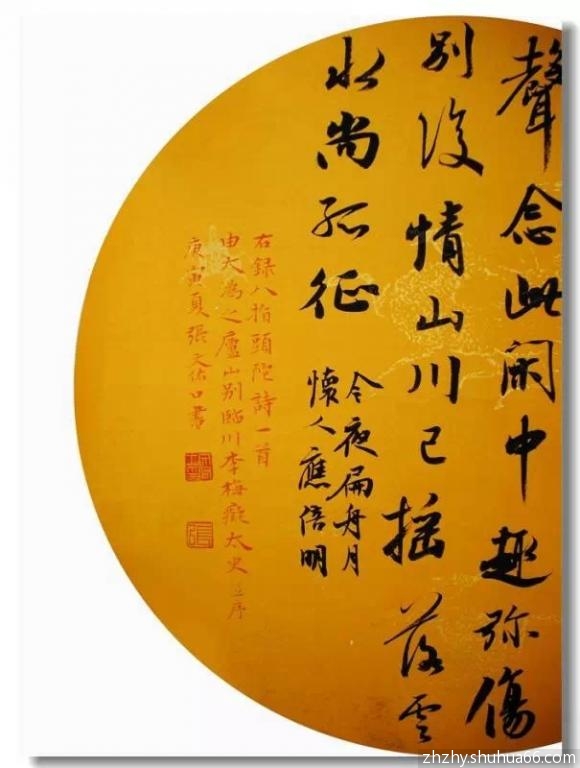 聲念此閑中趣弥傷
别後情山川已摇落雲
水尚孤征
今夜扁舟月
懷人應倍明
右録八指頭陀詩一首
由大為之廬山别臨川李梅癡太史並序
庚寅夏張文口書
張
zhzhy.shuhua66.com